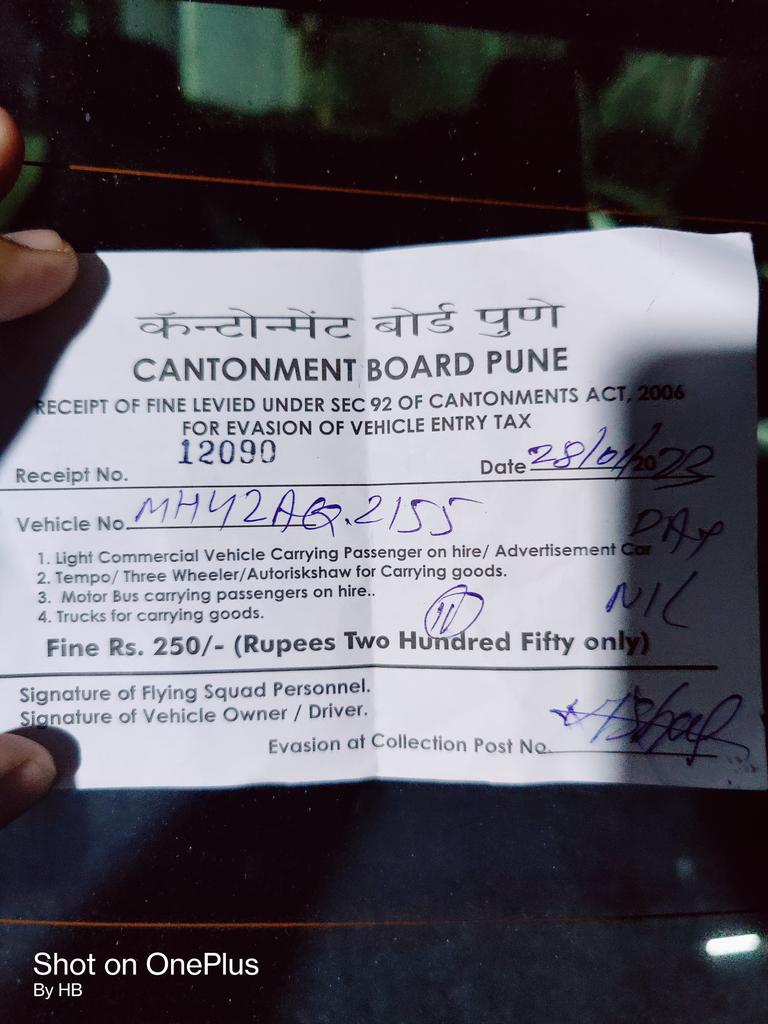 कॅन्टोन्मेंट बोर्ड पुणे
CANTONMENT BOARD PUNE
RECEIPT OF FINE LEVIED UNDER SEC 92 OF CANTONMENTS ACT, 2006
FOR EVASION OF VEHICLE ENTRY TAX
12090
Receipt No. Date 28/01/2023
Vehicle No. MH42AQ.2155
DAY
1. Light Commercial Vehicle Carrying Passenger on hire/ Advertisement Car
2. Tempo/ Three Wheeler/Autoriskshaw for Carrying goods.
3. Motor Bus carrying passengers on hire..
NIL
4. Trucks for carrying goods.
Fine Rs. 250/- (Rupees Two Hundred Fifty only)
Signature of Flying Squad Personnel.
Signature of Vehicle Owner / Driver.
Evasion at Collection Post No.
Shot on OnePlus
By HB